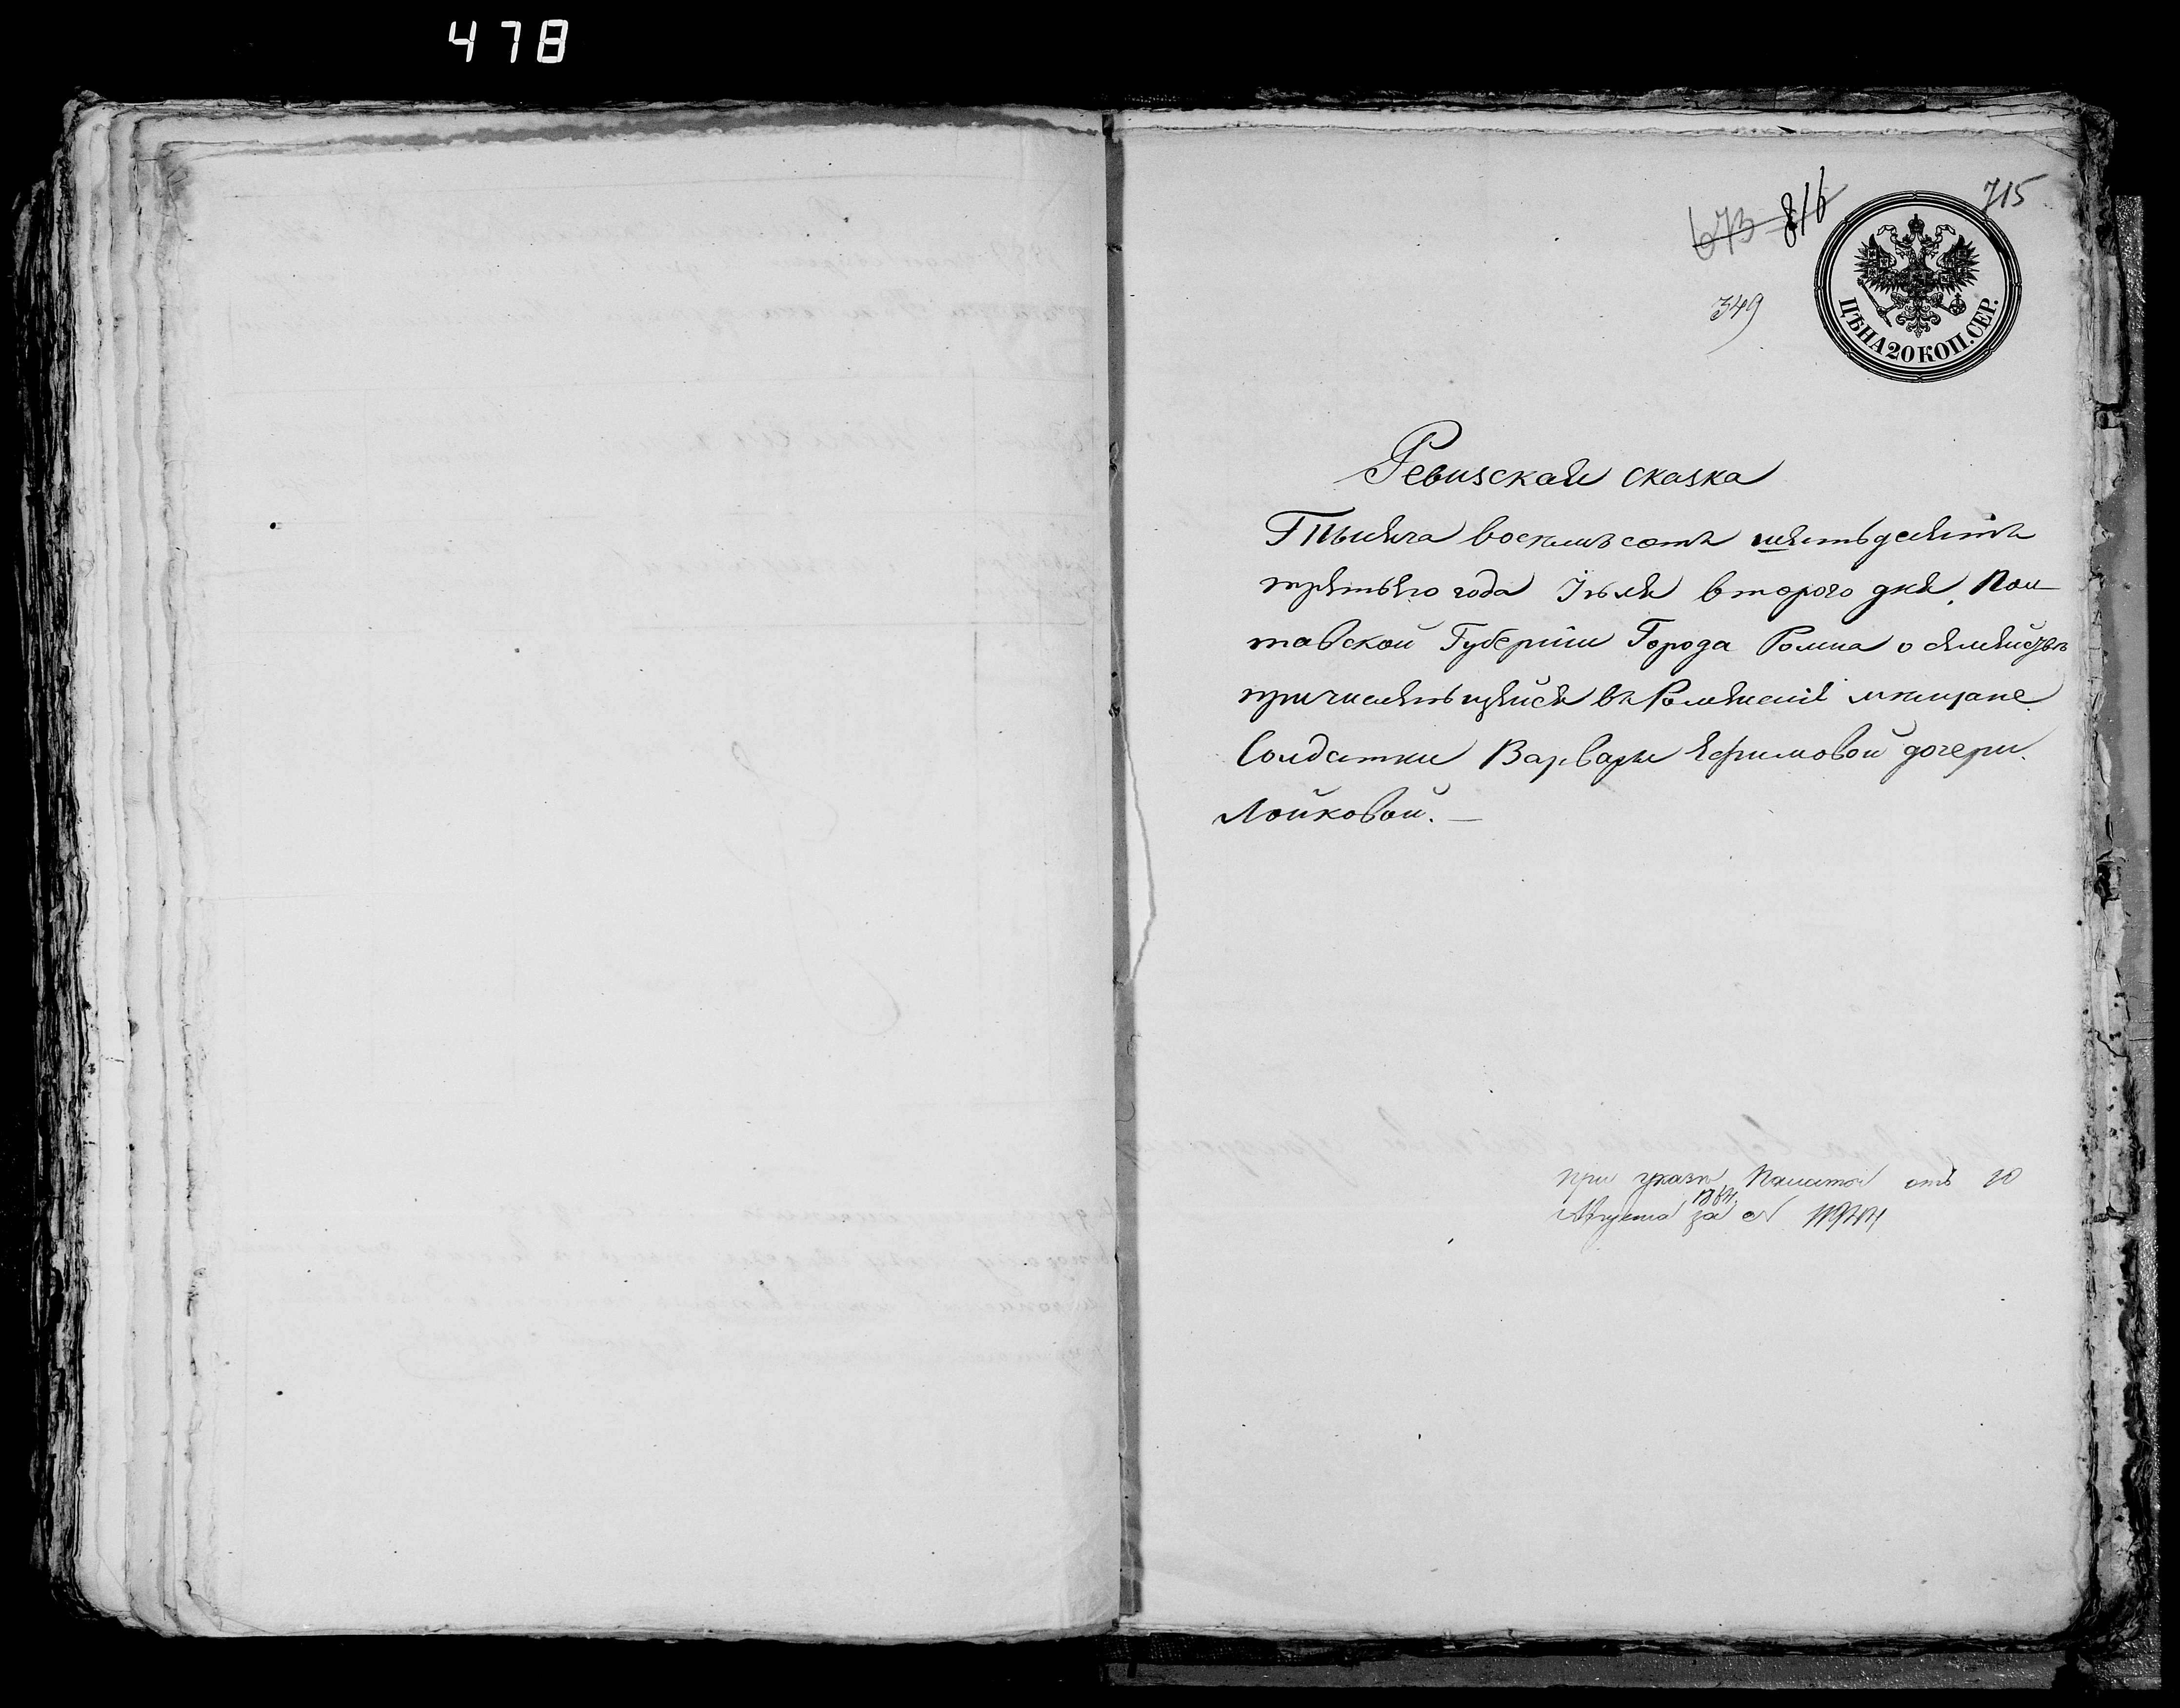 478
673 816
715
349
ЦѢНА 20 КОП. СЕР.
Ревизская сказка
Тысяча восемьсотъ шестьдесятъ
третьяго года Іюля второго дня, Пол-
тавской Губерніи Города Ромна о семействѣ
причисляющейся въ Роменскіе мѣщане
Солдатки Варвары Ефимовой дочери
Лойковой. —
при указѣ Палаты отъ 20
Августа за №